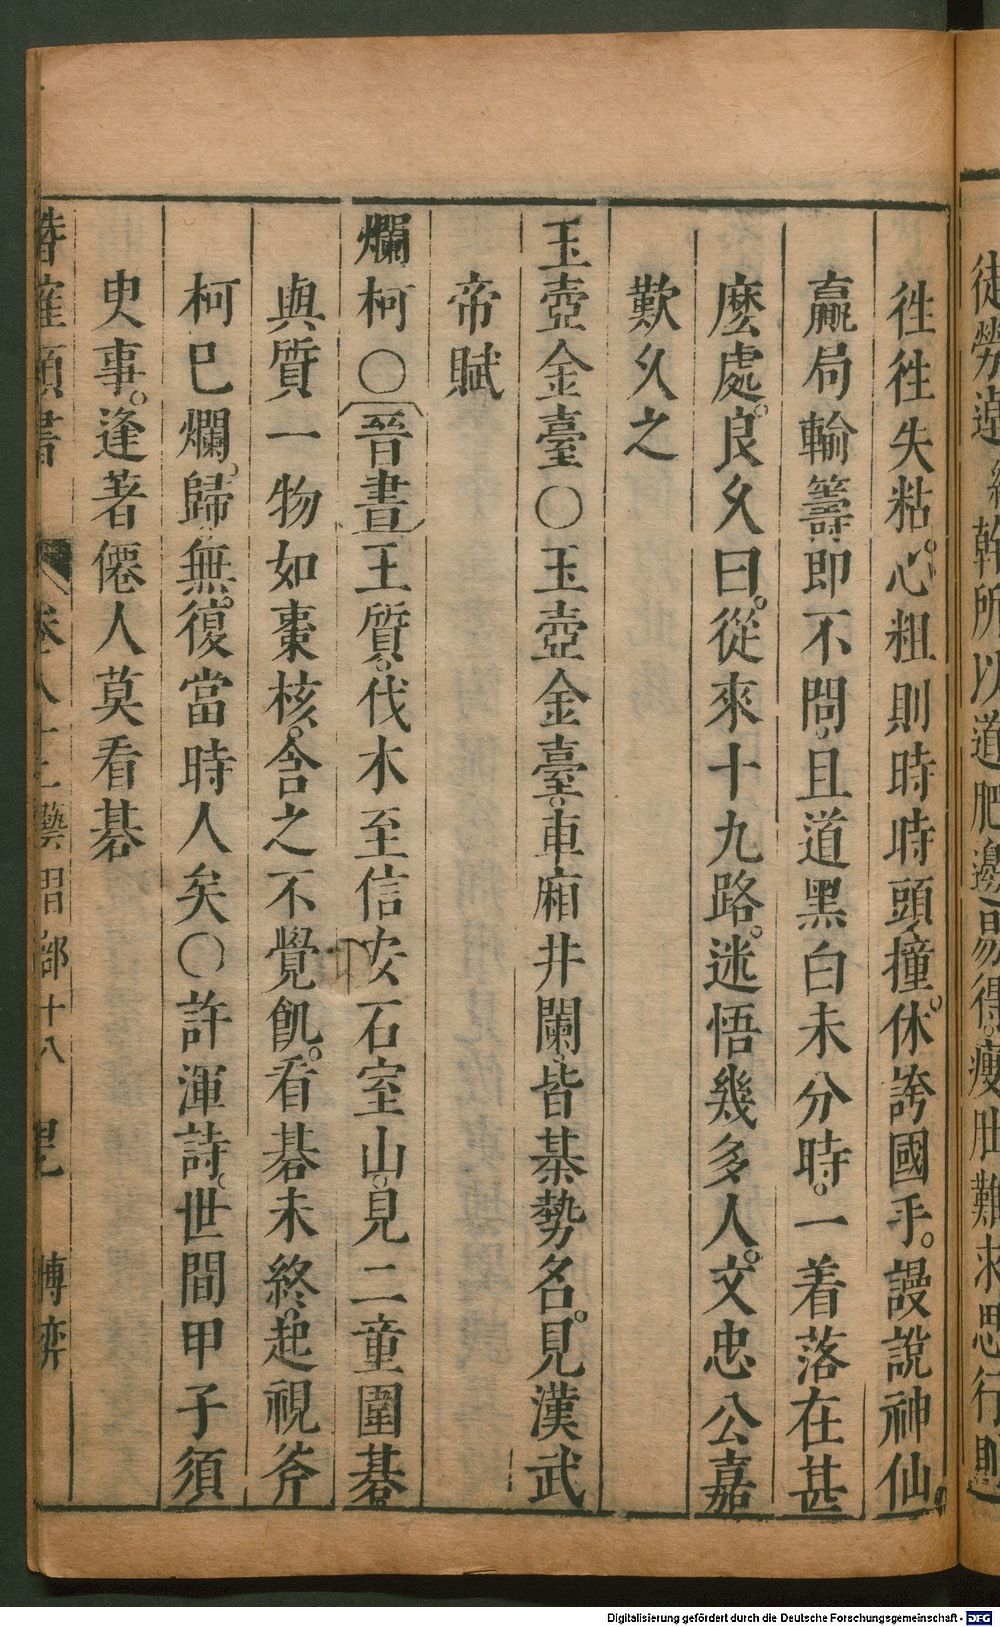 徒勞造  斡所以道肥邊易得。瘦肚難求思行則
徃徃失粘。心粗則時時頭撞。休誇國手。謾說神仙
贏局輸籌即不問。且道黑白未分時。一着落在甚
麼處。良乆曰。從來十九路。迷悟幾多人。文忠公嘉
歎乆之
玉壺金臺○玉壺金臺。車廂井闌。皆棊勢名。見漢武
帝賦
爛柯○晉書王質。伐木至信安石室山。見二童圍棊
與質一物如棗核。含之不覺飢。看棊未終。起視斧
柯巳爛。歸無。復當時人矣○許渾詩。世間甲子須
史事。逢著僊人莫看棊
類書 卷八十 藝習部十八 博弈
Digitalisierung gefördert durch die Deutsche Forschungsgemeinschaft - DFG